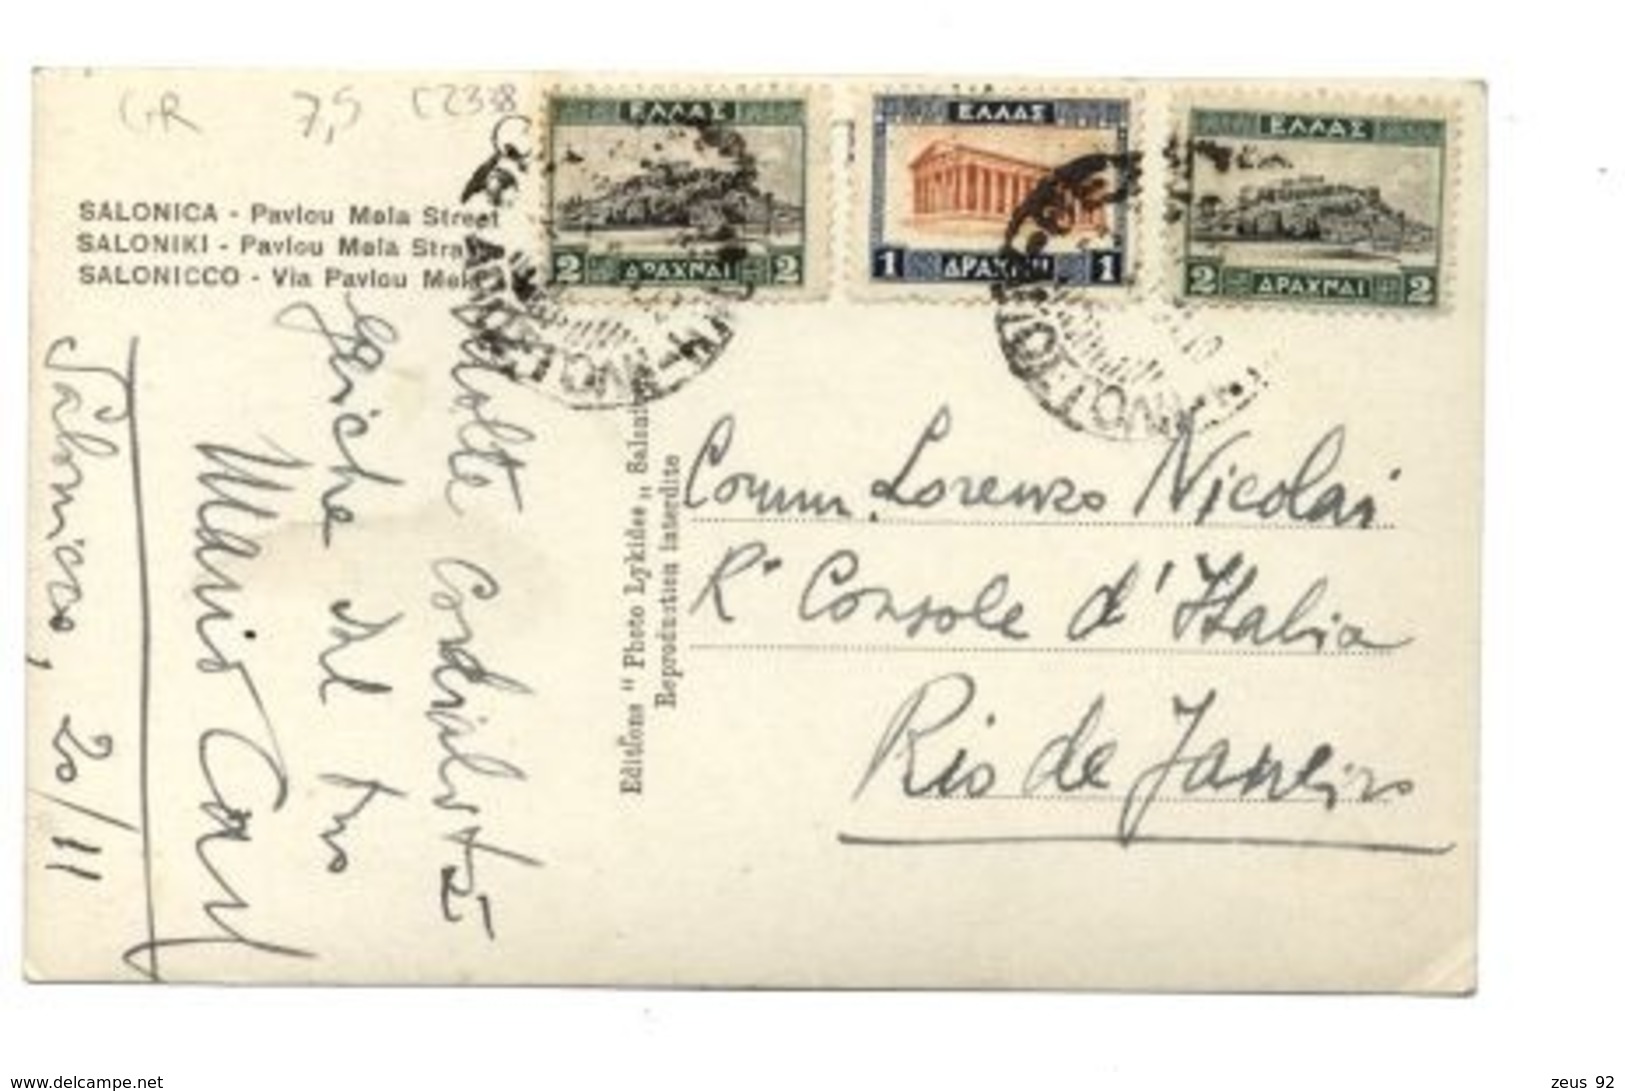 GR 7,5 C2338
ΕΛΛΑΣ
2 ΔΡΑΧΜΑΙ 2
ΕΛΛΑΣ
1 ΔΡΑΧΜΗ 1
ΕΛΛΑΣ
2 ΔΡΑΧΜΑΙ 2
SALONICA - Pavlou Mela Street
SALONIKI - Pavlou Mela Stra
SALONICCO - Via Pavlou Mela
Cordialità
dal tuo
Mario
Salonicco, 20/11
Editions " Photo Lykides „
Reproduction interdite
Comm. Lorenzo Nicolai
Rº Console d'Italia
Rio de Janeiro
delcampe.net
zeus 92